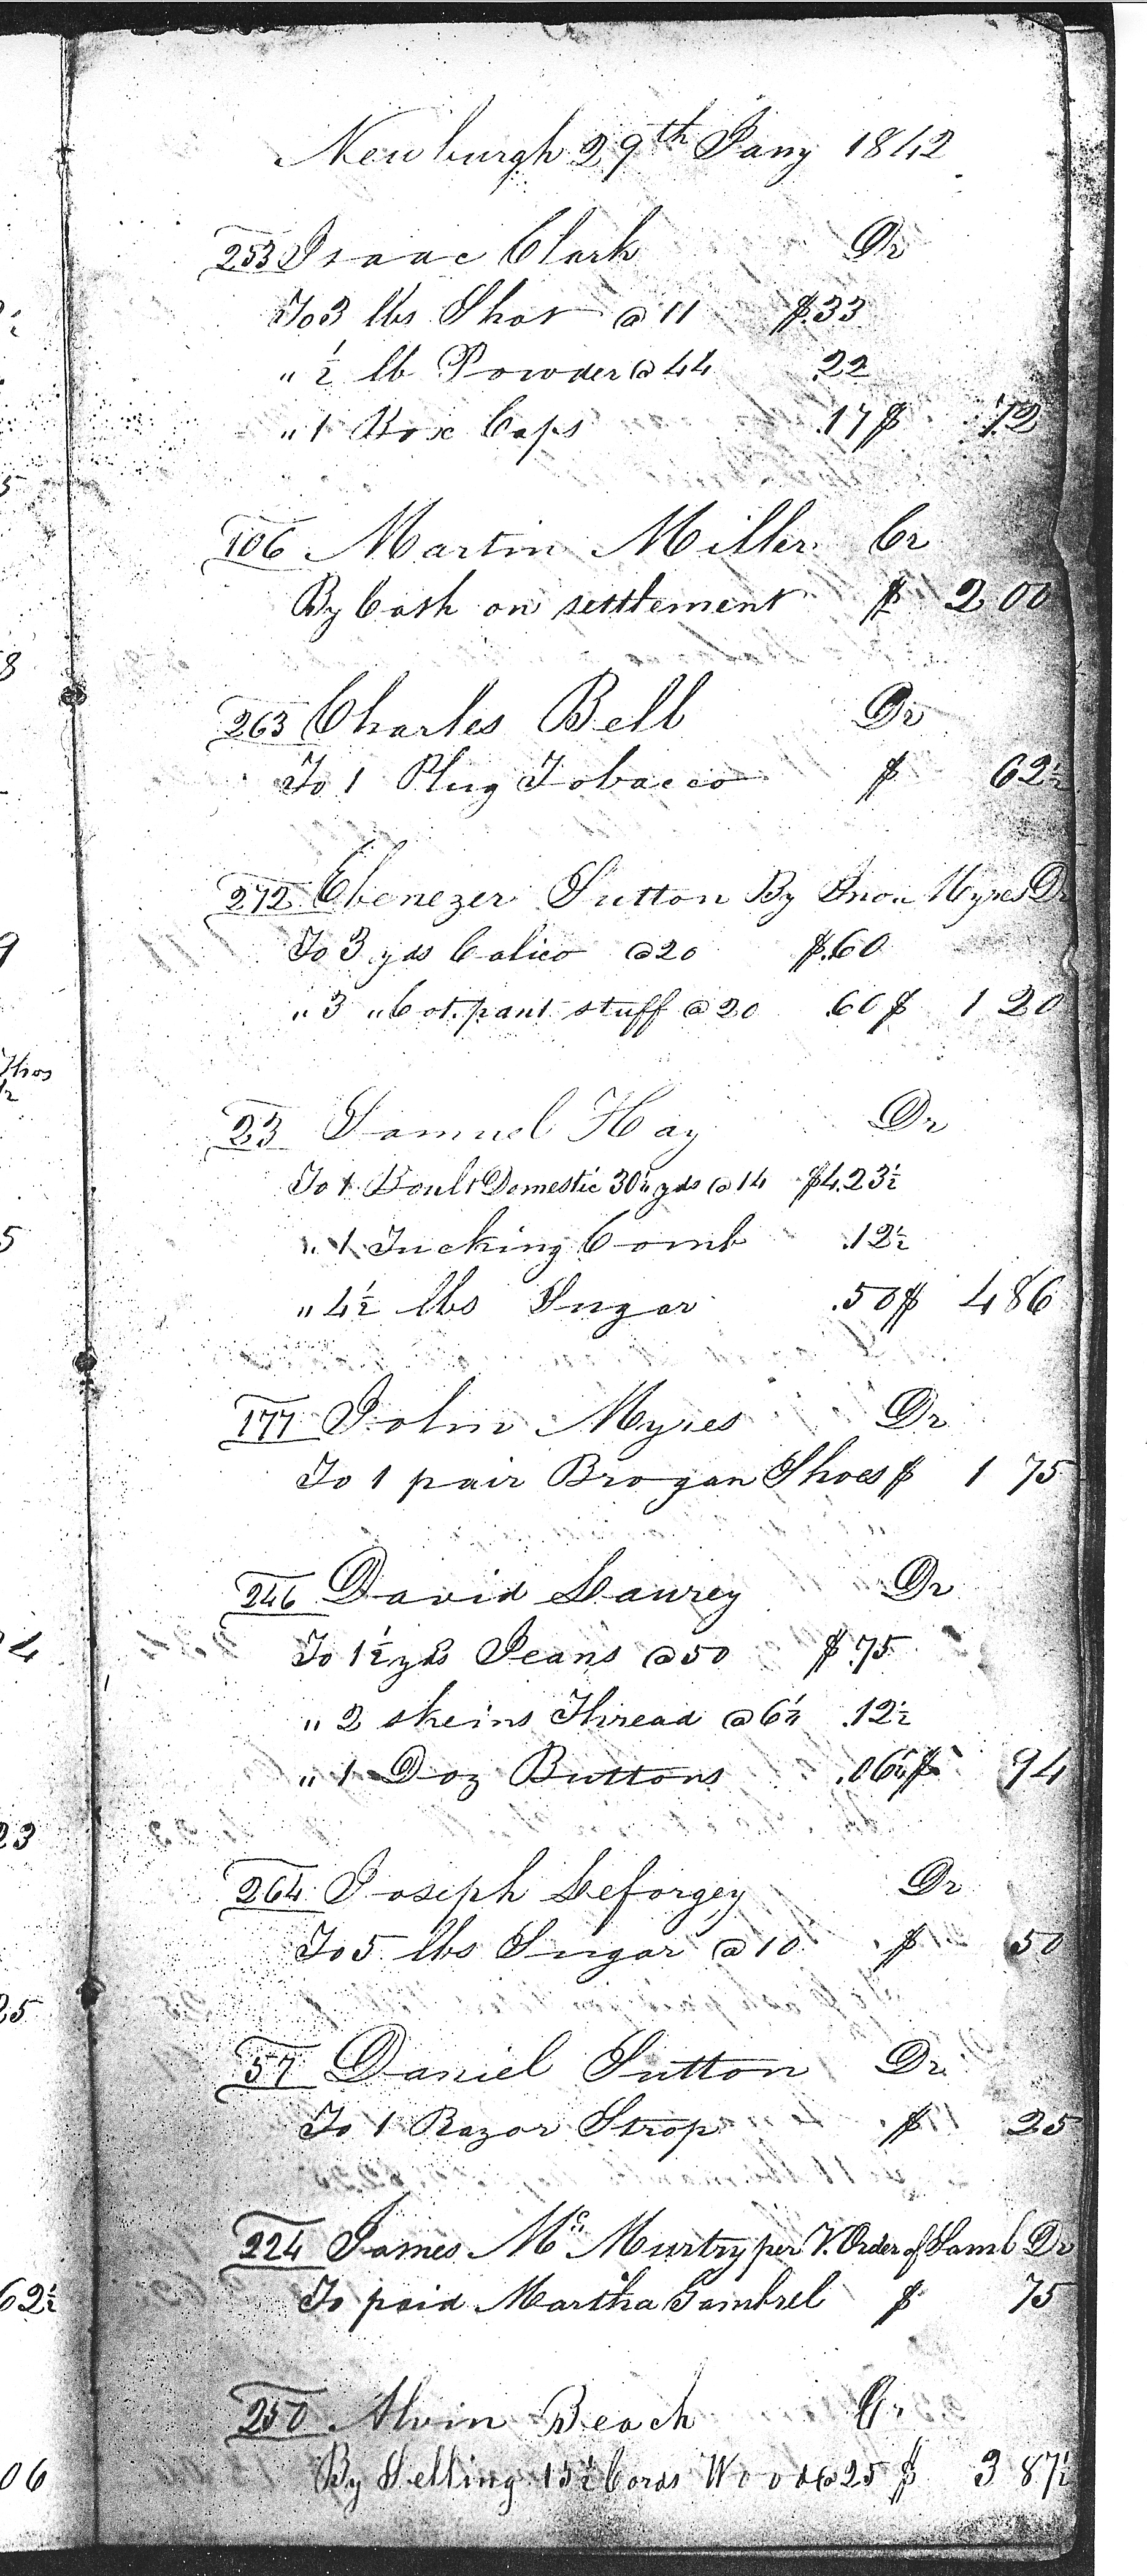 Newburgh 29th Jany 1842
253 Isaac Clark Dr
To 3 lbs Shot @ 11 $.33
" ½ lb Powder @ 44 .22
" 1 Box Caps .17 $ .72
106 Martin Miller Cr
By Cash on settlement $ 2 00
263 Charles Bell Dr
To 1 Plug Tobacco $ 62½
272 Ebenezer Sutton By Jno. Myres Dr
To 3 yds Calico @ 20 $.60
" 3 " Cot. pant stuff @ 20 .60 $ 1 20
23 Samuel Hay Dr
To 1 Boult Domestic 30¼ yds @ 14 $4.23½
" 1 Tucking Comb .12½
" 4½ lbs Sugar .50 $ 4 86
177 John Myres Dr
To 1 pair Brogan Shoes $ 1 75
246 David Laurey Dr
To 1½ yds Jeans @ 50 $.75
" 2 skeins Thread @ 6¼ .12½
" 1 Doz Buttons .06¼ $ 94
264 Joseph Leforgey Dr
To 5 lbs Sugar @ 10 $ 50
57 Daniel Sutton Dr
To 1 Razor Strop $ 25
224 James Mc Murtry per V. Order of Saml Dr
To paid Martha Gambrel $ 75
250 Alvin Beach Cr
By Selling 15½ Cords Wood @ 25 $ 3 87½